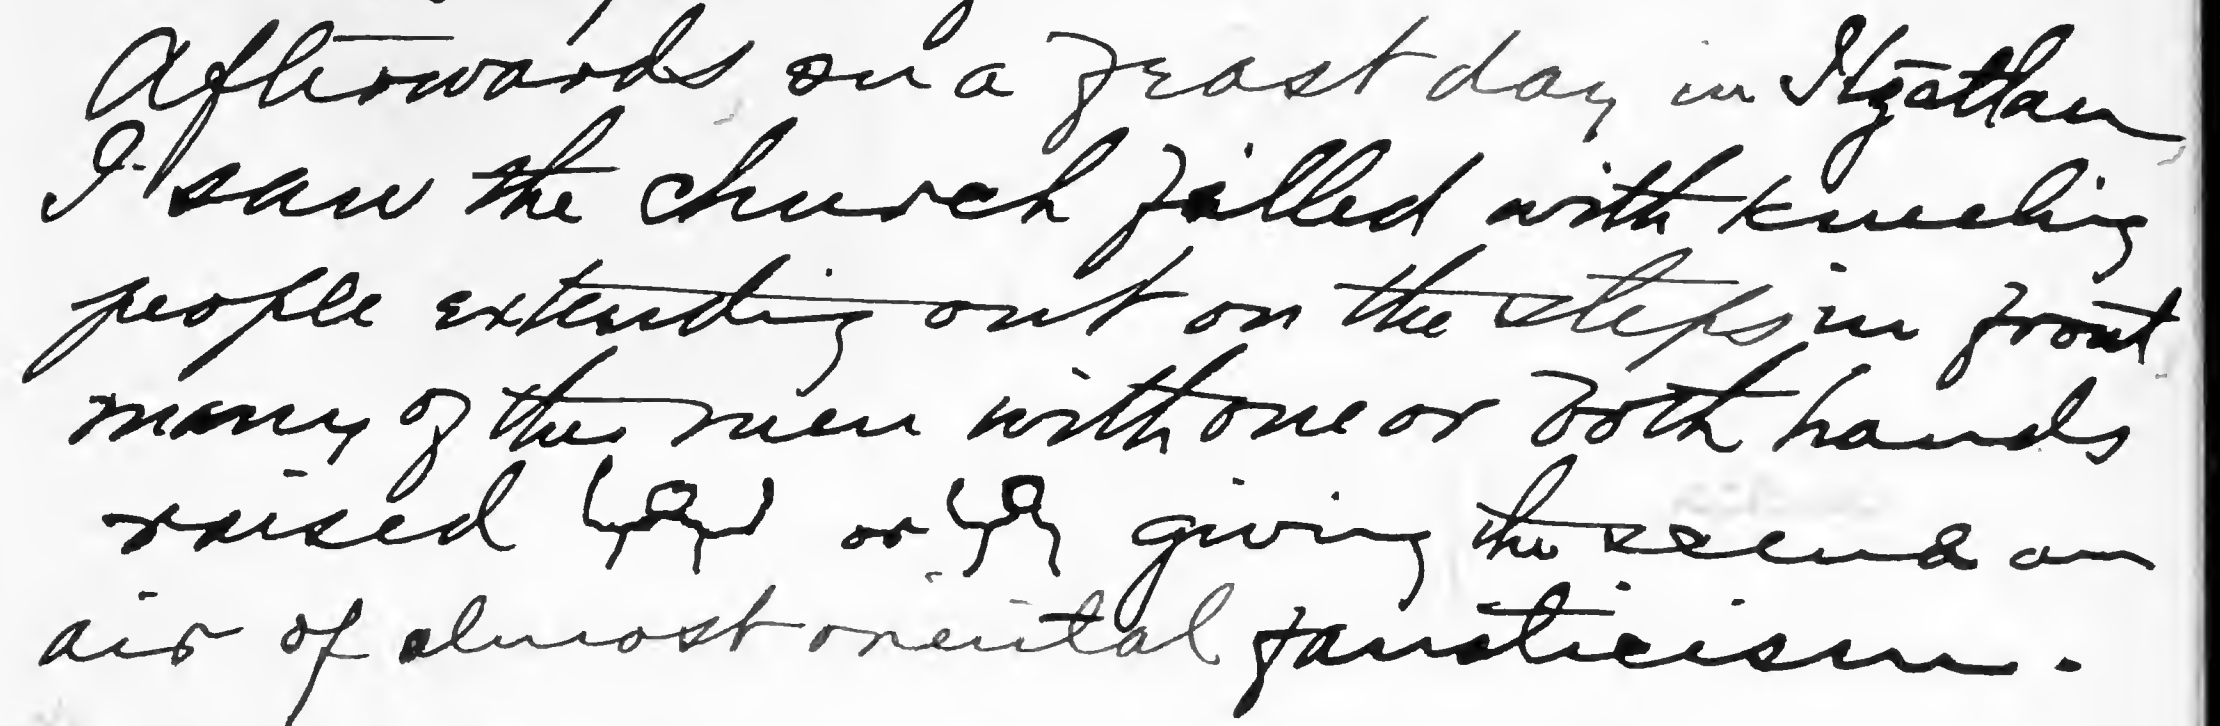 Afterwards on a feast day in Itzatlan
I saw the church filled with kneeling
people extending out on the steps in front
many of the men with one or both hands
raised or giving the scene an
air of almost oriental fanaticism.